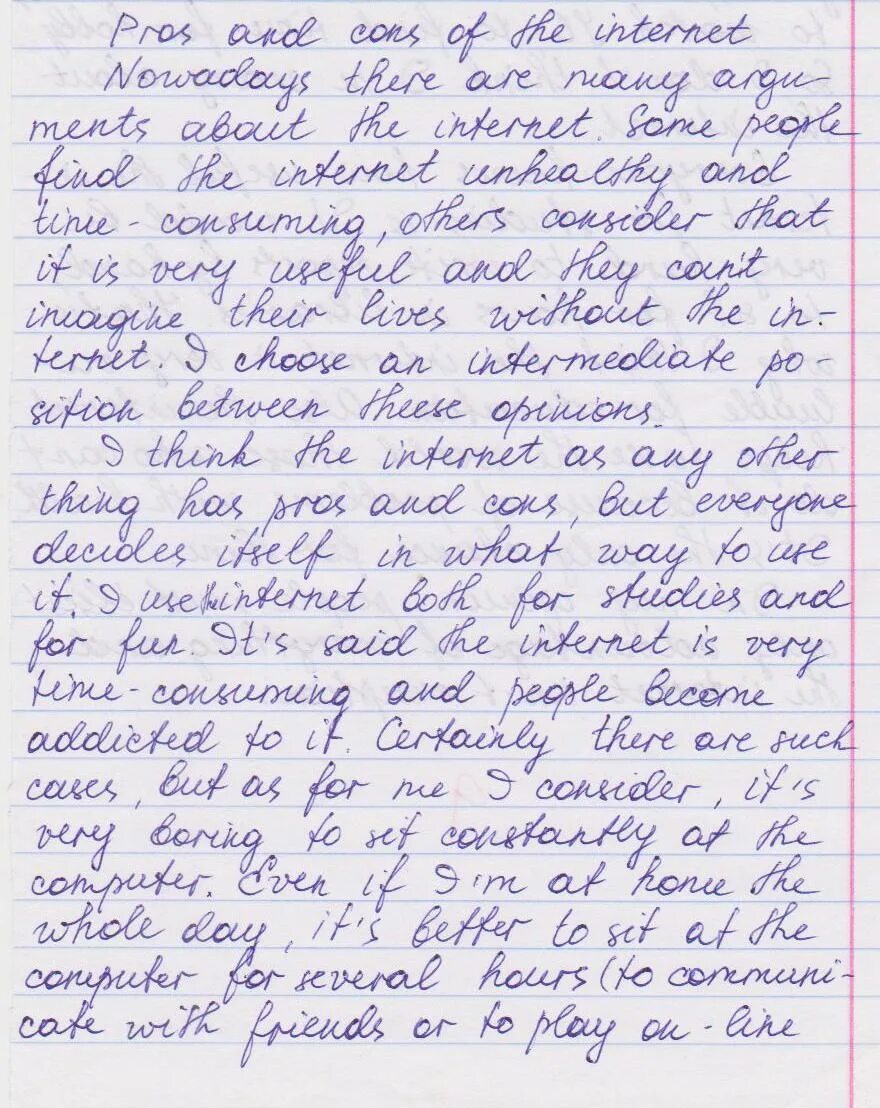 Pros and cons of the internet
Nowadays there are many argu-
ments about the internet. Some people
find the internet unhealthy and
time-consuming, others consider that
it is very useful and they can't
imagine their lives without the in-
ternet. I choose an intermediate po-
sition between theese opinions.
I think the internet as any other
thing has pros and cons, but everyone
decides itself in what way to use
it. I use the internet both for studies and
for fun. It's said the internet is very
time-consuming and people become
addicted to it. Certainly there are such
cases, but as for me I consider, it's
very boring to sit constantly at the
computer. Even if I'm at home the
whole day, it's better to sit at the
computer for several hours (to communi-
cate with friends or to play on-line